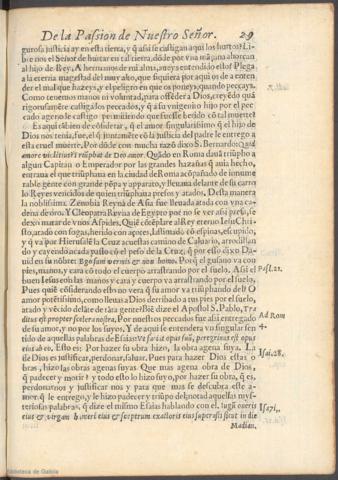 De la Passion de Nuestro Señor. 29
gurosa justicia ay en esta tierra, y q̃ assi se castigan aqui los hurtos? Li-
bre nos el Señor de hurtar en tal tierra, dõde por vna mãçana ahorcan
al hijo de Rey. A hermanos de mi alma, aueys entendido esto? Plega
a la eterna magestad del muy alto, que siquiera por aqui os de a enten-
der el mal que hazeys, y el peligro en que os poneys, quando peccays.
Como tenemos manos ni voluntad, para offẽder a Dios, creyẽdo quã
rigurosamẽte castiga los peccados, y q̃ a su vnigenito hijo por el pec-
cado ageno le castigo permitiendo que fuesse herido cõ tal muerte?
Es aqui tãbien de cõsiderar, q̃ el amor singularissimo q̃ el hijo de
Dios nos tenia, fue, el q̃ juntamẽte cõ la justicia del padre le entrego a
esta cruel muerte. Por dõde con mucha razõ dixo S. Bernardo: Quid
amore violentius? triũphat de Deo amor. Quãdo en Roma daua triũpho a
algun Capitan o Emperador por las grandes hazañas q̃ auia hecho,
entraua el que triũphaua en la ciudad de Roma acõpañado de innume
rable gente con grande põpa y apparato, y lleuaua delante de su carro
los Reyes vencidos de quien triũphaua presos y atados. Desta manera
la noblissima Zenobia Reyna de Asia fue lleuada atada con vna ca
dena de oro. Y Cleopatra Reyna de Egypto por no se ver assi presa, se
dexo matar de vnos Aspides. Quiẽ cõtẽplare al Rey eterno Iesu Chri-
sto, atado con sogas, herido con açotes, lastimado cõ espinas, escupido,
y q̃ va por Hierusalẽ la Cruz acuestas camino de Caluario, arrodillan
do y cayendo a cada passo cõ el peso de la Cruz, q̃ por esso dixo Da-
uid en su nõbre: Ego sum vermis & non homo. Porq̃ el gusano va con
pies, manos, y cara cõ todo el cuerpo arrastrando por el suelo. Assi el Psal. 21.
buen Iesus con las manos y cara y cuerpo va arrastrando por el suelo.
Pues quiẽ cõsiderando esto no vera q̃ su amor va triũphando del? O
amor potẽtissimo, como lleuas a Dios derribado a tus pies por el suelo,
atado y vẽcido delãte de tãta gente? Assi dize el Apostol S. Pablo, Tra
ditus est propter scelera nostra. Por nuestros peccados fue assi entregado Ad Rom
de su amor, y no por los suyos. Y de aqui se entendera vn singular sen 4.
tido de aquellas palabras de Esaias: Vt faciat opus suũ, peregrinus est opus
eius ab eo. Esto es: Por hazer su obra hizo, la obra agena suya. La Isai. 28.
de Dios es justificar, perdonar, saluar. Pues para hazer Dios estas o
bras, hizo las obras agenas suyas. Que mas agena obra de Dios,
q̃ padecer y morir? y todo esto lo hizo suyo, por hazer su obra, q̃ es,
perdonarnos y justificar nos y para que mas se descubra este a-
mor q̃ le entrego, y le hizo padecer y triũpo del, notad aquellas my-
steriosas palabras, q̃ dize el mismo Esaias hablando con el. Iugũ oneris Isa. 9.
eius & virgam humeri eius & sceptrum exactoris eius superasti sicut in die
Madian.
Biblioteca de Galicia